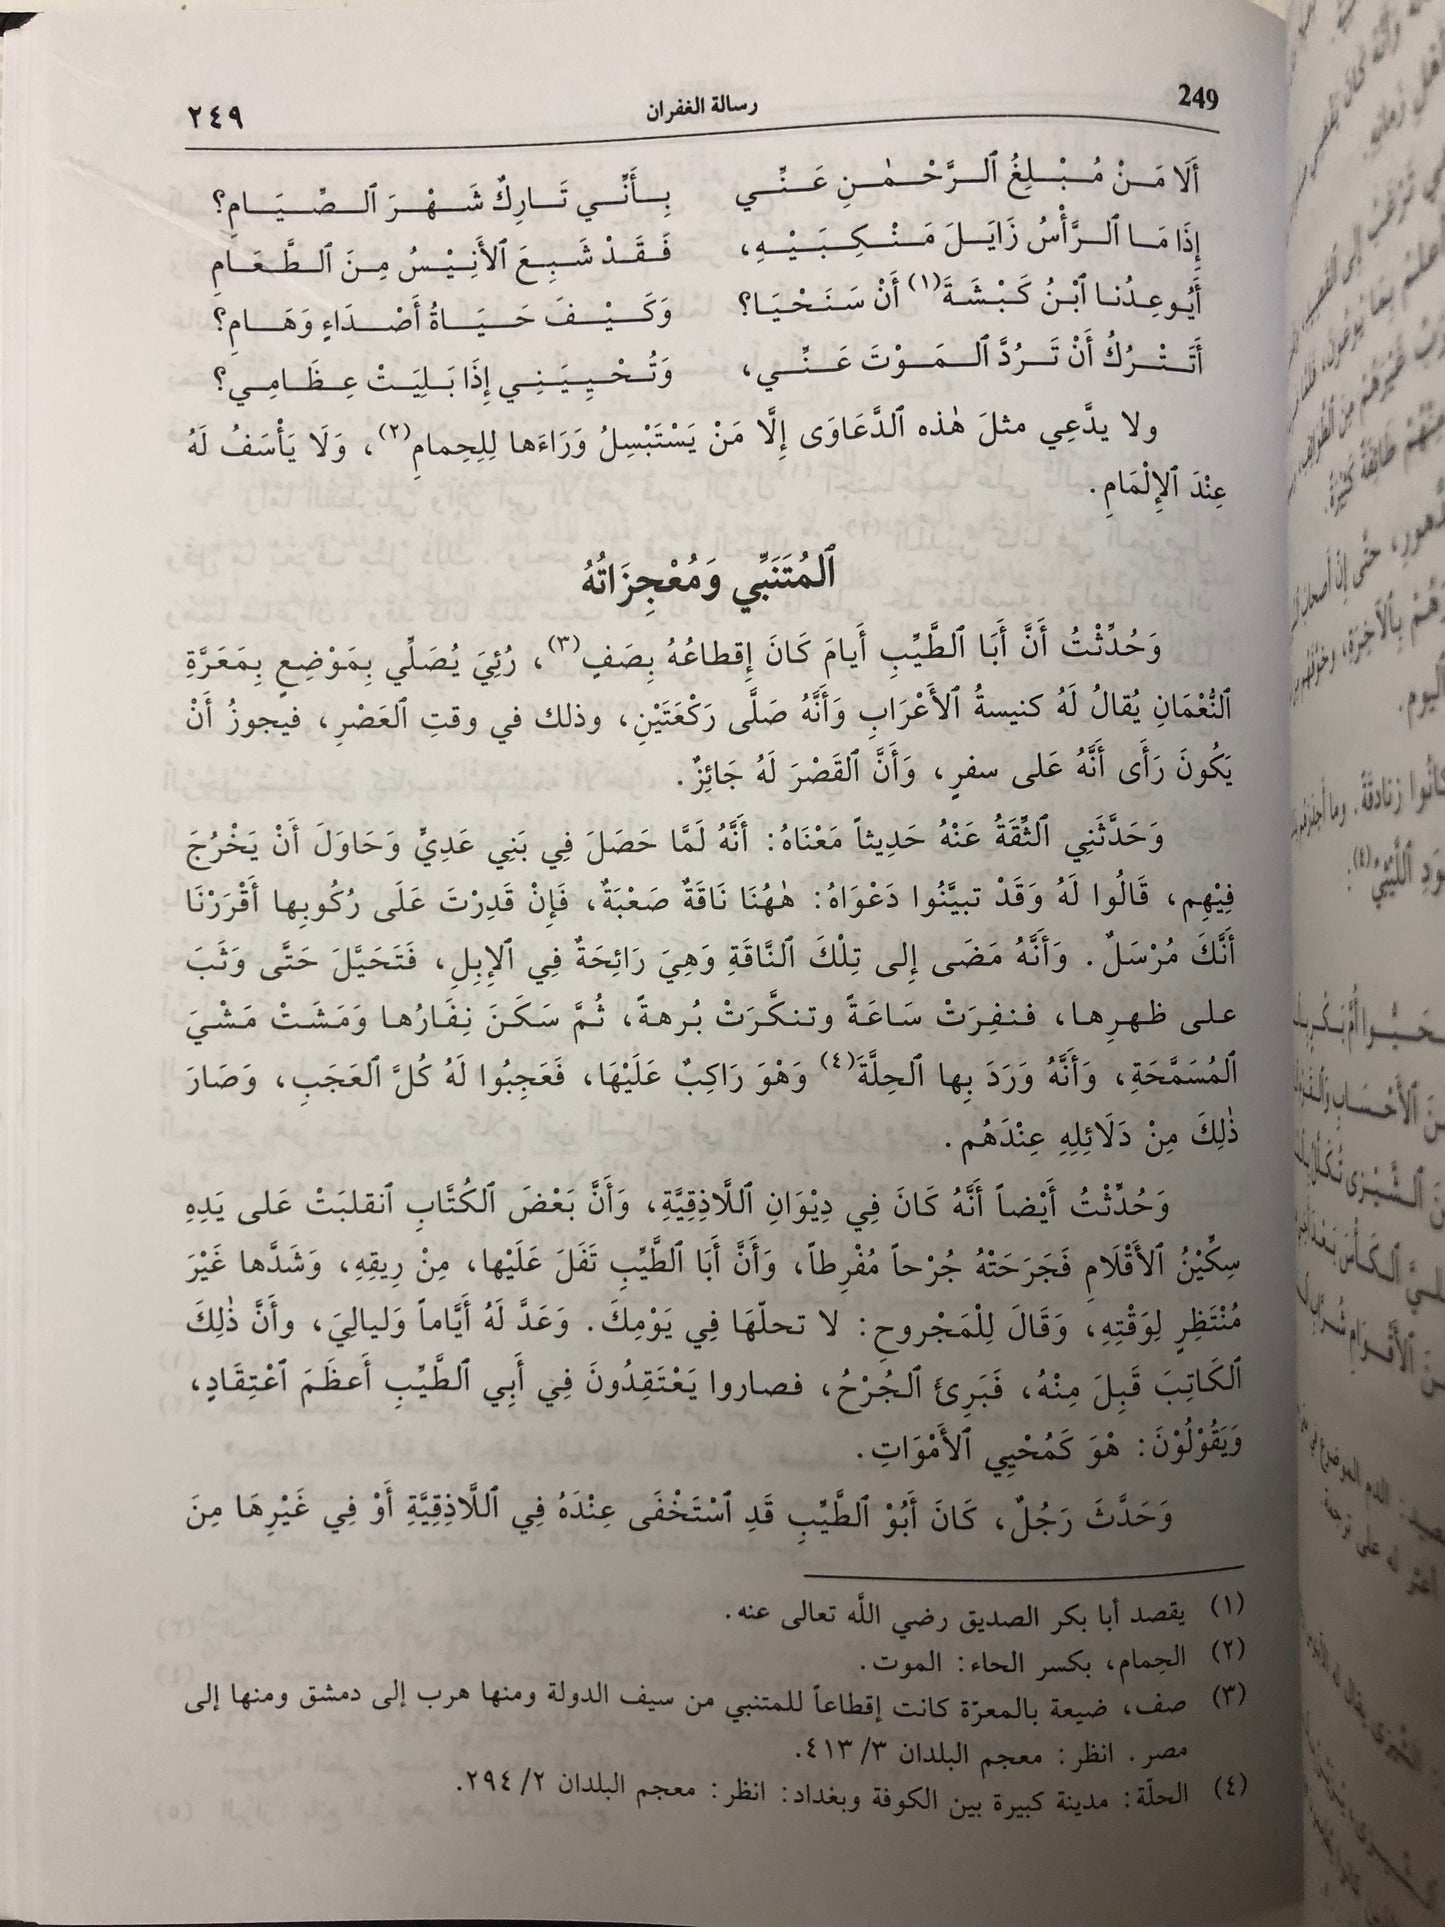 249 رسالة الغفران ٢٤٩
أَلَا مَــنْ مُــبْــلِغُ ٱلــرَّحْــمٰــنِ عَــنِّــي بِــأَنِّــي تَــارِكٌ شَــهْــرَ ٱلــصِّــيَــامِ؟
إِذَا مَــا ٱلــرَّأْسُ زَايَــلَ مَــنْــكِــبَــيْــهِ، فَــقَــدْ شَــبِــعَ ٱلأَنِــيْــسُ مِــنَ ٱلــطَّــعَــامِ
أَيُوعِدُنا ٱبْنُ كَبْشَةَ(١) أَنْ سَنَحْيَا؟ وَكَــيْــفَ حَــيَــاةُ أَصْــدَاءٍ وَهَــامِ؟
أَتَــتْــرُكُ أَنْ تَــرُدَّ ٱلــمَــوْتَ عَــنِّــي، وَتُــحْــيِــيَــنِــي إِذَا بَــلِيَــتْ عِــظَــامِــي؟
ولا يدَّعِي مثلَ هٰذه ٱلدَّعَاوَى إِلَّا مَنْ يَسْتَبْسِلُ وَرَاءَها لِلِحِمامِ(٢)، وَلَا يَأْسَفُ لَهُ
عِنْدَ ٱلإِلْمَامِ.
ٱلمُتَنَبِّي وَمُعْجِزَاتُهُ
وَحُدِّثْتُ أَنَّ أَبَا ٱلطَّيِّبِ أَيامَ كَانَ إِقطاعُهُ بِصَفٍ(٣)، رُئِيَ يُصَلِّي بِمَوْضِعٍ بِمَعَرَّةِ
ٱلنُّعْمَانِ يُقالُ لَهُ كنيسةُ ٱلأَعْرَابِ وَأَنَّهُ صَلَّى رَكْعَتَيْنِ، وذلك في وقتِ ٱلعَصْرِ، فيجوزُ أَنْ
يَكُونَ رَأَى أَنَّهُ عَلى سفرٍ، وَأَنَّ ٱلقَصْرَ لَهُ جَائِزٌ.
وَحَدَّثَنِي ٱلثِّقَةُ عَنْهُ حَدِيثاً مَعْنَاهُ: أَنَّهُ لَمَّا حَصَلَ فِي بَنِي عَدِيٍّ وَحَاوَلَ أَنْ يَخْرُجَ
فِيْهِم، قَالُوا لَهُ وَقَدْ تبيَّنُوا دَعْوَاهُ: هٰهُنَا نَاقَةٌ صَعْبَةٌ، فَإِنْ قَدِرْتَ عَلَى رُكُوبِها أَقْرَرْنَا
أَنَّكَ مُرْسَلٌ. وَأَنَّهُ مَضَى إِلى تِلْكَ ٱلنَّاقَةِ وَهِيَ رَائِحَةٌ فِي ٱلإِبِلِ، فَتَحَيَّلَ حَتَّى وَثَبَ
على ظهرِها، فنفِرَتْ سَاعَةً وتنكَّرَتْ بُرهةً، ثُمَّ سَكَنَ نِفَارُها وَمَشَتْ مَشْيَ
ٱلمُسَمَّحَةِ، وَأَنَّهُ وَرَدَ بِها ٱلحِلَّةَ(٤) وَهْوَ رَاكِبٌ عَلَيْهَا، فَعَجِبُوا لَهُ كُلَّ ٱلعَجَبِ، وَصَارَ
ذٰلِكَ مِنْ دَلَائِلِهِ عِنْدَهُم.
وَحُدِّثْتُ أَيْضاً أَنَّهُ كَانَ فِي دِيْوَانِ ٱللَّاذِقِيَّةِ، وَأَنَّ بَعْضَ ٱلكُتَّابِ ٱنقلبَتْ عَلى يَدِهِ
سِكِّيْنُ ٱلأَقْلَامِ فَجَرَحَتْهُ جُرْحاً مُفْرِطاً، وَأَنَّ أَبَا ٱلطَّيِّبِ تَفَلَ عَلَيْها، مِنْ رِيقِهِ، وَشَدَّها غَيْرَ
مُنْتَظِرٍ لِوَقْتِهِ، وَقَالَ لِلْمَجْروحِ: لا تحلّهَا فِي يَوْمِكَ. وَعَدَّ لَهُ أَيَّاماً وَليالِيَ، وأَنَّ ذٰلِكَ
ٱلكَاتِبَ قَبِلَ مِنْهُ، فَبَرِئَ ٱلجُرْحُ، فصاروا يَعْتَقِدُونَ فِي أَبِي ٱلطَّيِّبِ أَعظَمَ ٱعْتِقَادٍ،
وَيَقُوْلُوْنَ: هْوَ كَمُحْيِي ٱلأَمْوَاتِ.
وَحَدَّثَ رَجُلٌ، كَانَ أَبُوْ ٱلطَّيِّبِ قَدِ ٱسْتَخْفَى عِنْدَهُ فِي ٱللَّاذِقِيَّةِ أَوْ فِي غَيْرِهَا مِنَ
(١) يقصد أبا بكر الصديق رضي اللَّه تعالى عنه.
(٢) الحِمام، بكسر الحاء: الموت.
(٣) صف، ضيعة بالمعرّة كانت إقطاعاً للمتنبي من سيف الدولة ومنها هرب إلى دمشق ومنها إلى
مصر. انظر: معجم البلدان ٣/ ٤١٣.
(٤) الحلّة: مدينة كبيرة بين الكوفة وبغداد: انظر: معجم البلدان ٢/ ٢٩٤.